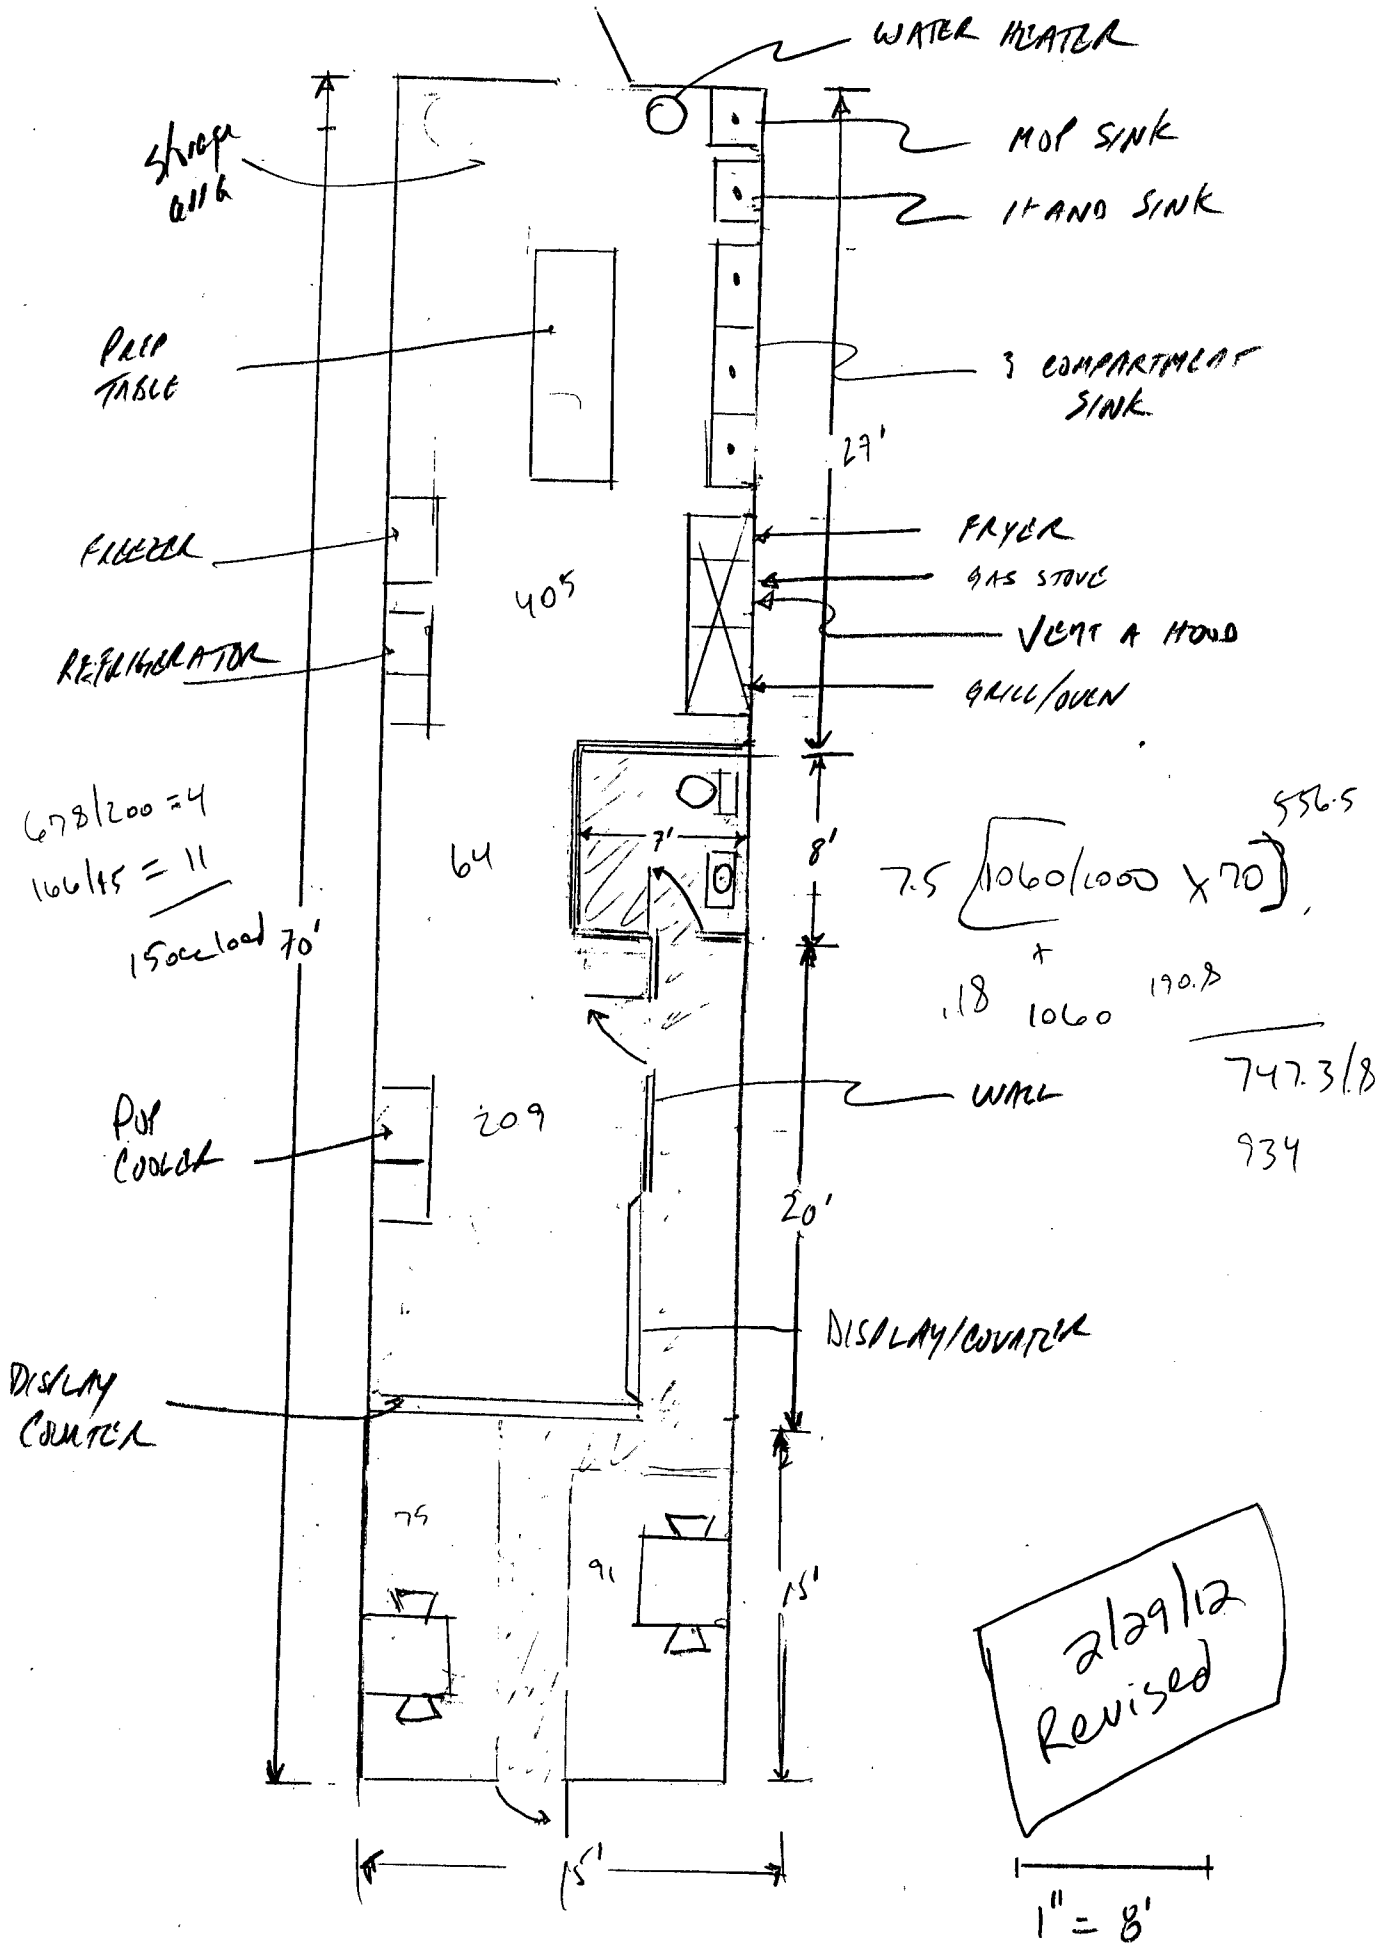 WATER HEATER
MOP SINK
HAND SINK
PREP
TABLE
3 COMPARTMENT
SINK
27'
FREEZER
FRYER
GAS STOVE
405
VENT A HOOD
REFRIGERATOR
GRILL/OVEN
678/200 = 4
166/15 = 11
15 occ load
70'
64
7'
8'
7.5 [1060/1000 x 70]
556.5
+
.18 1060 190.8
747.3/.8
934
WALL
POP
COOLER
209
20'
DISPLAY/COUNTER
DISPLAY
COUNTER
75
91
15'
2/29/12
Revised
15'
1" = 8'